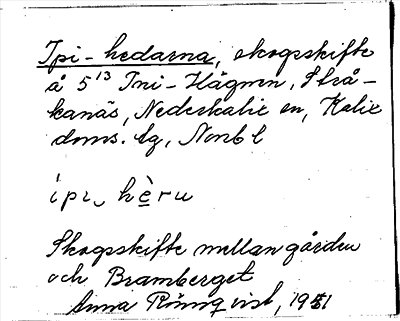 Ipi-hedarna, skogsskifte
å 5¹³ Ini-Hägnen, Strå-
kanäs, Nederkalix sn, Kalix
doms. lg, Norrb l
ípi‿ hèru
Skogsskifte mellan gården
och Bramberget
Anna Rönnqvist, 1951